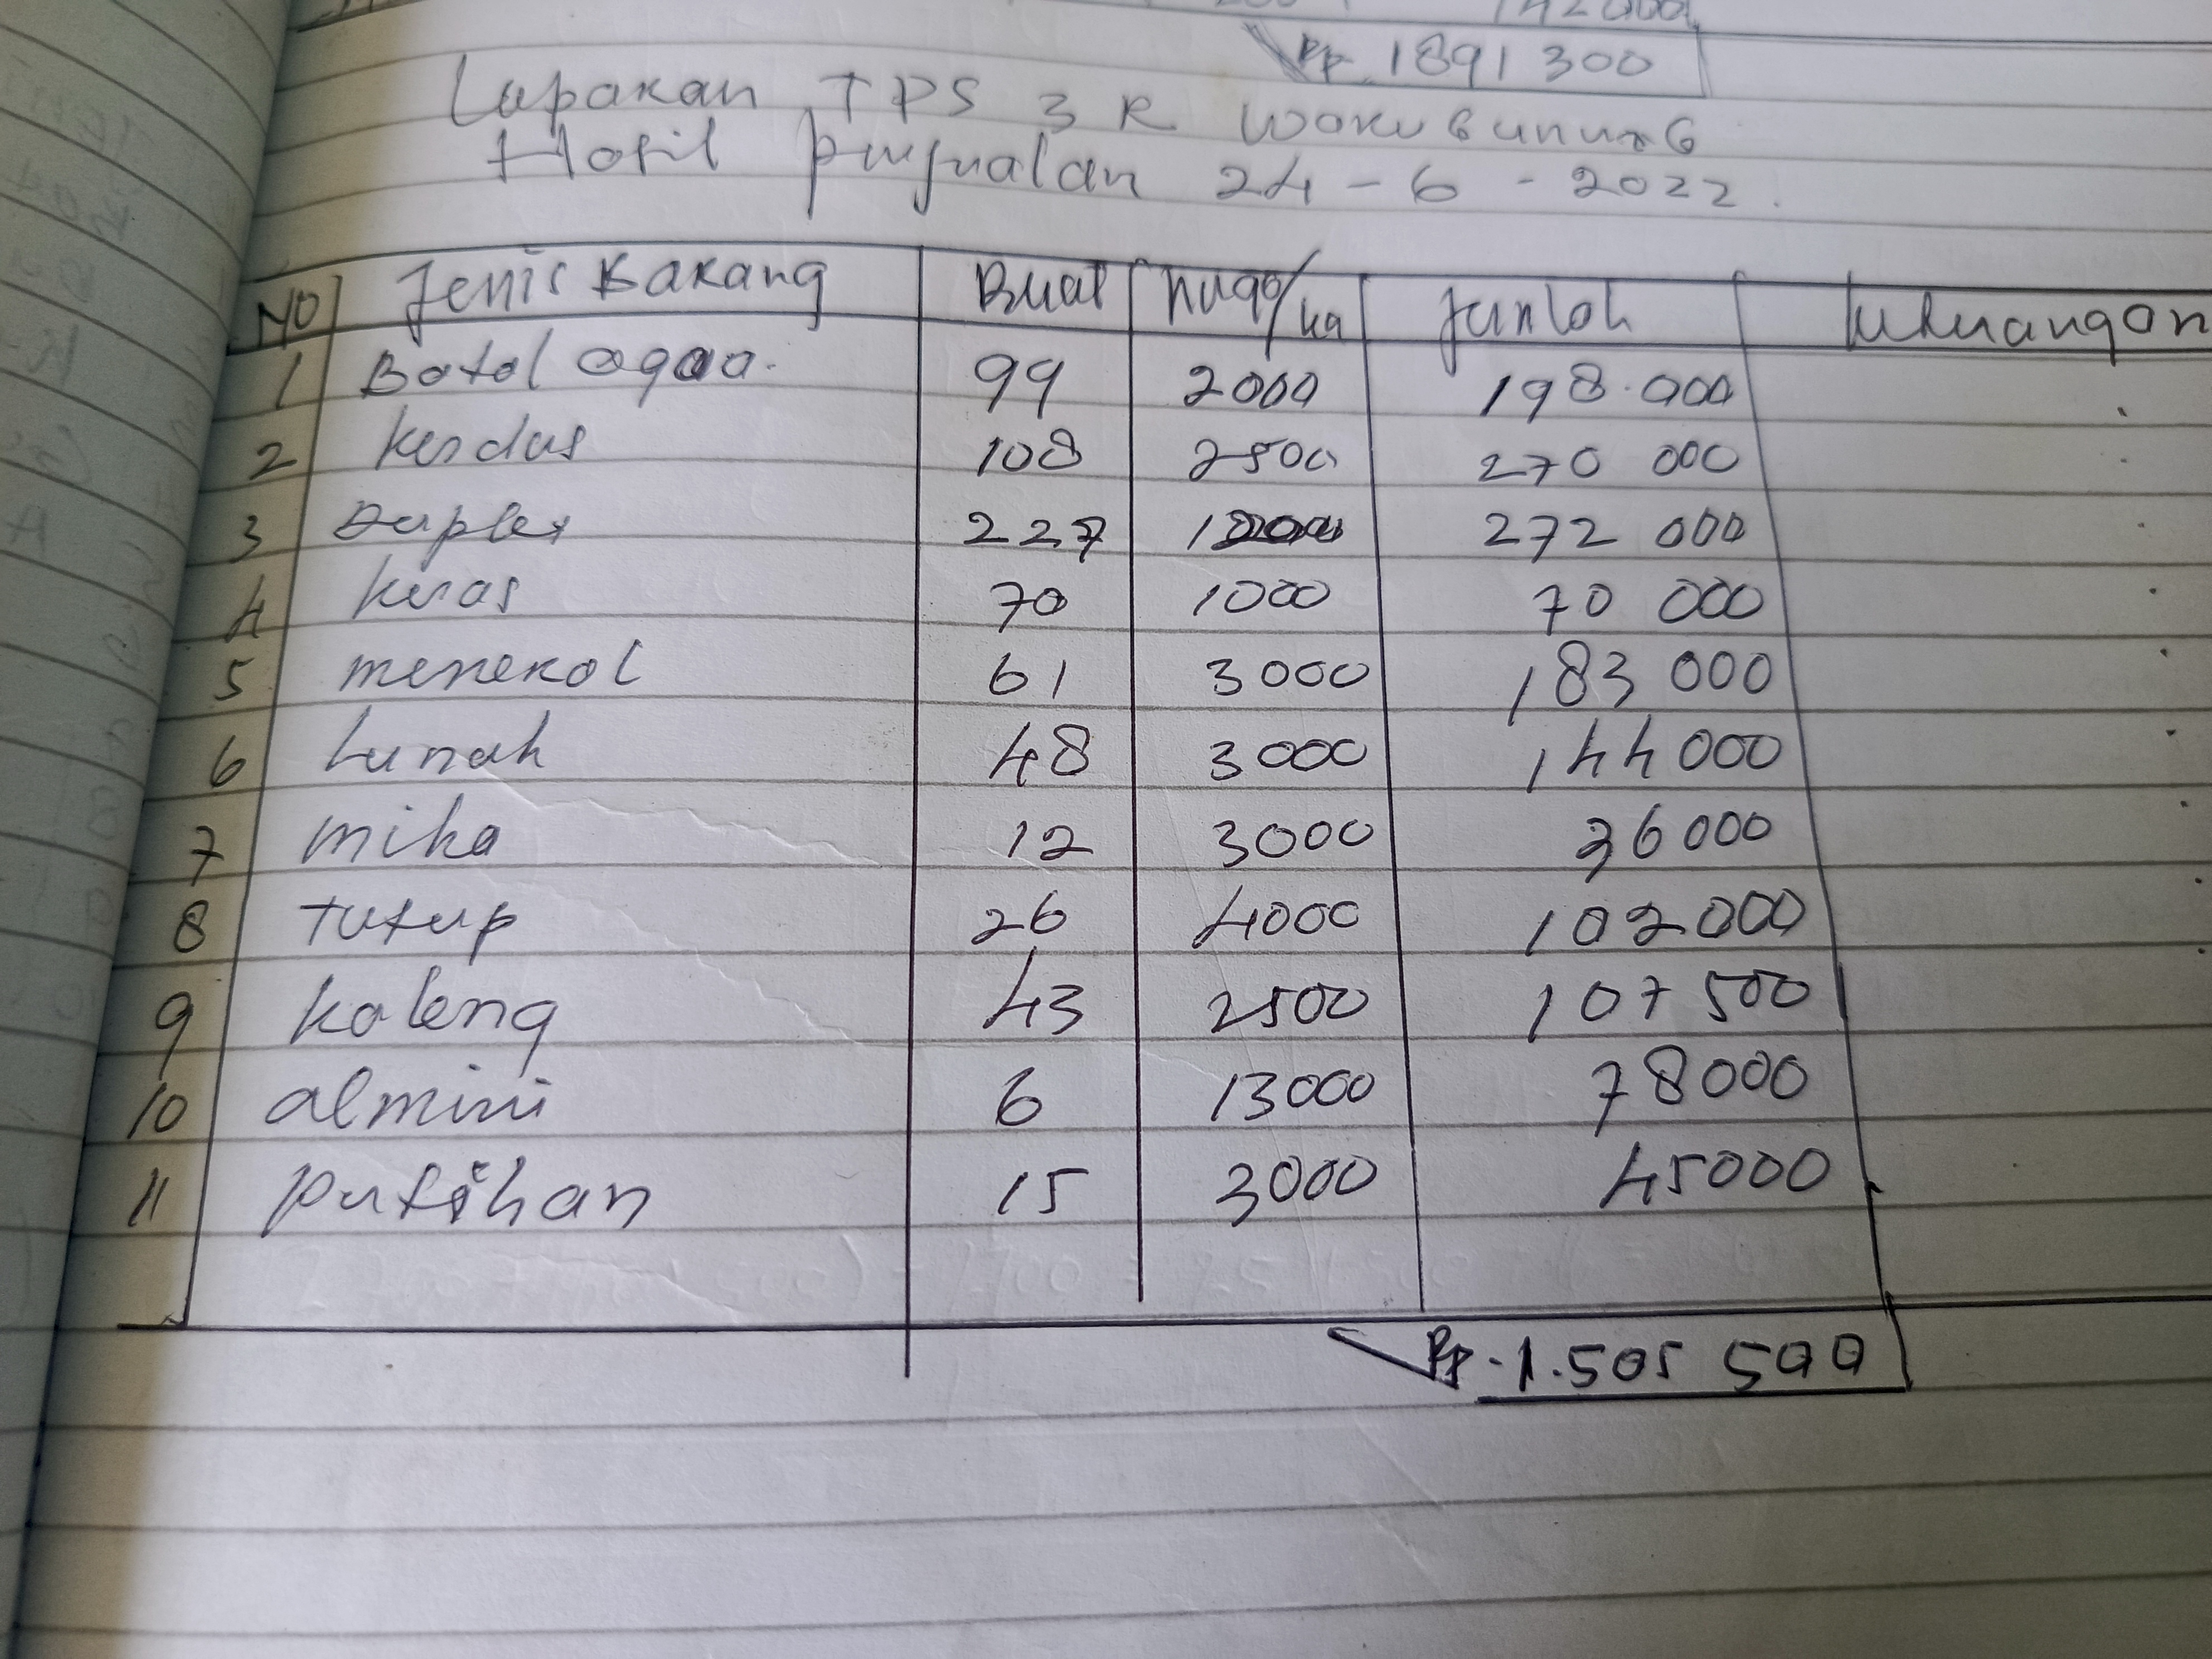 Rp. 1891 300
Laparan TPS 3 R
Hasil penjualan 24 - 6 - 2022.
NO Jenis Barang Berat harga/kg Jumlah keterangan
1 Botol aqaa. 99 2000 198.000
2 kerdus 108 2500 270 000
3 Duplex 227 272 000
4 keras 70 1000 70 000
5 menekol 61 3000 183 000
6 Lunak 48 3000 144000
7 mika 12 3000 36000
8 Tutup 26 4000 102000
9 kaleng 43 2500 107 500
10 almini 6 13000 78000
11 putihan 15 3000 45000
Rp. 1.505 500